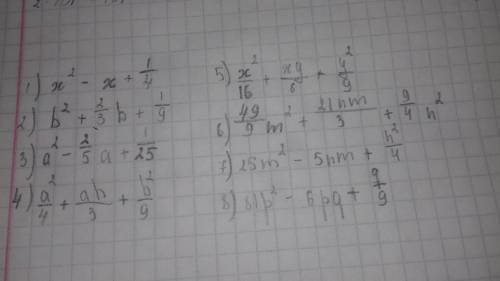 1) x² - x + 1/4
2) b² + 2/3 b + 1/9
3) a² - 2/5 a + 1/25
4) a²/4 + ab/3 + b²/9
5) x²/16 + xy/6 + y²/9
6) 49/9 m² + 21nm/3 + 9/4 n²
7) 25m² - 5nm + n²/4
8) 81p² - 6pq + q/9